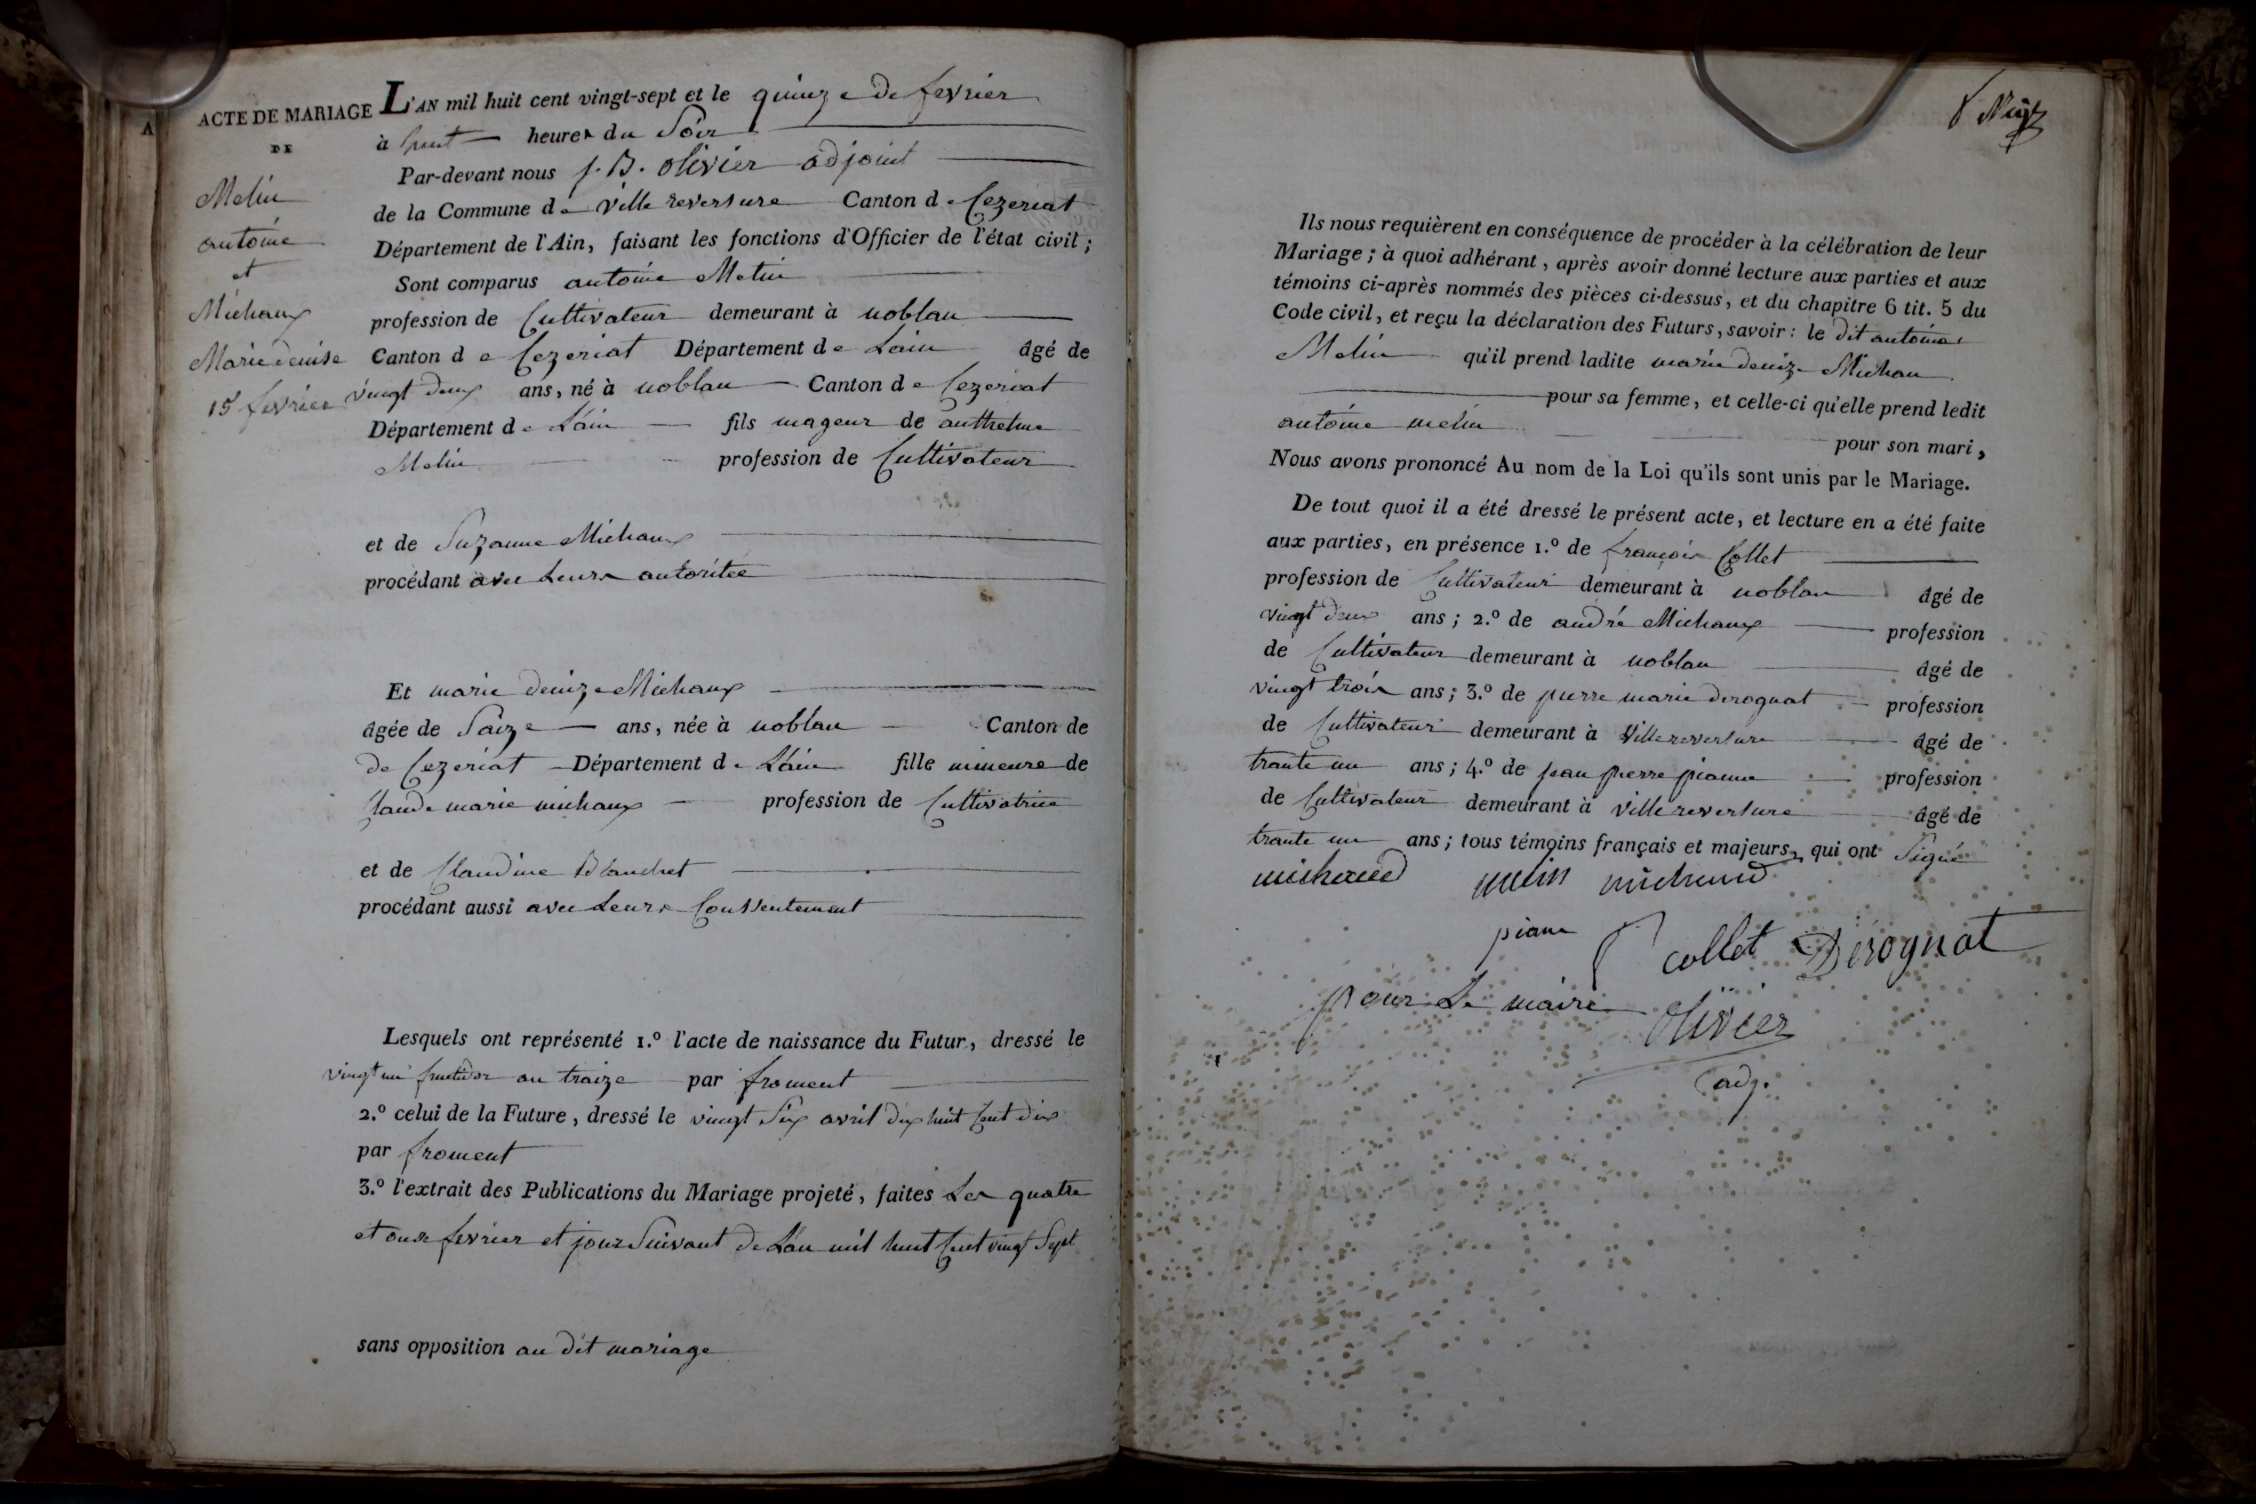 ACTE DE MARIAGE
DE
Melin
antoine
et
Michaux
Marie denise
15 fevrier
L'AN mil huit cent vingt-sept et le quinze de fevrier
à huit heures du Soir
Par-devant nous j. B. olivier adjoint
de la Commune de Ville reversure Canton de Cezeriat
Département de l'Ain, faisant les fonctions d'Officier de l'état civil;
Sont comparus antoine Melin
profession de Cultivateur demeurant à noblan
Canton de Cezeriat Département de Lain âgé de
vingt deux ans, né à noblan Canton de Cezeriat
Département de Lain fils mageur de anthelme
Melin profession de Cultivateur
et de Suzanne Michaux
procédant avec Leurs autoritée
Et marie denize Michaux
âgée de Saize ans, née à noblan Canton de
de Cezeriat Département de Lain fille mineure de
Claude marie michaux profession de Cultivatrice
et de Claudine Blanchet
procédant aussi avec Leurs Consentement
Lesquels ont représenté 1.º l'acte de naissance du Futur, dressé le
vingt un fructidor an traize par froment
2.º celui de la Future, dressé le vingt Six avril dix huit Cent dix
par froment
3.º l'extrait des Publications du Mariage projeté, faites Les quatre
et onze fevrier et jour Suivant de Lan mil huit Cent vingt Sept
sans opposition au dit mariage
Ils nous requièrent en conséquence de procéder à la célébration de leur
Mariage; à quoi adhérant, après avoir donné lecture aux parties et aux
témoins ci-après nommés des pièces ci-dessus, et du chapitre 6 tit. 5 du
Code civil, et reçu la déclaration des Futurs, savoir: le dit antoine
Melin qu'il prend ladite marie denize Michau
pour sa femme, et celle-ci qu'elle prend ledit
antoine melin pour son mari,
Nous avons prononcé Au nom de la Loi qu'ils sont unis par le Mariage.
De tout quoi il a été dressé le présent acte, et lecture en a été faite
aux parties, en présence 1.º de françois Collet
profession de Cultivateur demeurant à noblan âgé de
vingt deux ans; 2.º de andré Michaux profession
de Cultivateur demeurant à noblan âgé de
vingt trois ans; 3.º de pierre marie derognat profession
de Cultivateur demeurant à Villereversure âgé de
trante un ans; 4.º de jean pierre pianna profession
de Cultivateur demeurant à villereversure âgé de
trante un ans; tous témoins français et majeurs, qui ont Signé
michaud melin michaud
piana collet Derognat
pour Le maire
Olivier
adj.